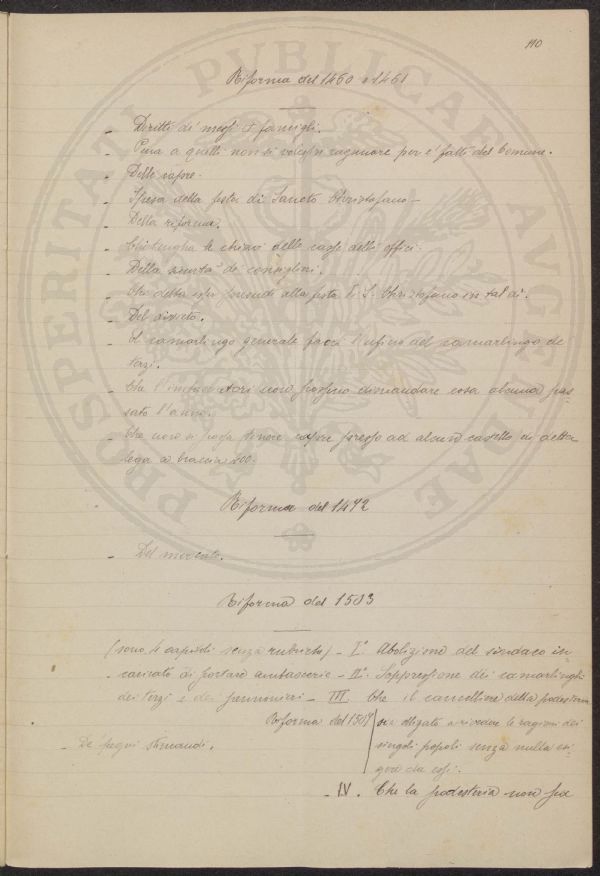 110
Riforma del 1460 e 1461
- Diritti di messi e famigli.
- Pena a quelli non si volessi ragunare per e' fatti del Comune.
- Delle capre.
- Spesa della festa di Sancto Christofano -
- Della riforma.
- Chi tengha le chiavi delle casse delli offici.
- Della de consiglieri.
- Che debba esser alla festa di S. Christofano in tal dì.
- Del divieto.
- Il camarlingo generale facci l'uficio del camarlingo de
terzi.
- Che l' non possino dimandare cosa alcuna pas-
sato l'anno.
- Che non si possa tenere capre presso ad alcuno castello in detta
lega a braccia 200.
Riforma del 1472
- Del mercato.
Riforma del 1583
(sono 4 capitoli senza rubriche) - I.° Abolizione del sindaco in-
caricato di portare ambascerie - II.° Soppressione dei camarlinghi
dei terzi e dei - III. Che il cancelliere della podesteria
sia obligato a rivedere le ragioni dei
singoli popoli senza nulla esi-
gere da essi.
Riforma del 1517
- De' pegni
- IV. Che la podesteria non pa
PROSPERITATI PVBLICAE AVGENDAE